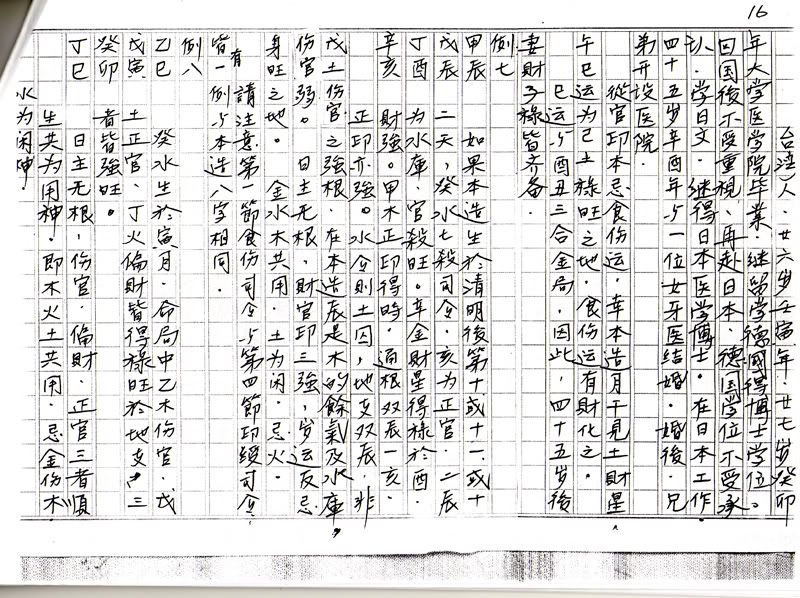 16
台湾人。廿六岁壬寅年。廿七岁癸卯
年大学医学院毕業 继留学德國得博士学位。
回国後不受重視、再赴日本。德国学位不受承
认。学日文。继得日本医学博士。在日本工作。
四十五岁辛酉年与一位女牙医结婚。婚後。兄
弟开設医院。
從官印本忌食伤运。幸本造月干見土財星。
午巳运为己土祿旺之地。食伤运有財化之。
巳运与酉丑三合金局。因此，四十五岁後
妻財子祿皆齐备。
例七
甲辰 如果本造生於清明後第十或十一或十
戊辰 二天，癸水七殺司令。亥为正官。二辰
丁酉 为水庫。官殺旺。辛金財星得祿於酉。
辛亥 財強。甲木正印得時。通根双辰一亥。
正印亦強。水令則土囚，地支双辰，非
戊土伤官之強根，在本造辰是木的餘氣及水庫，
伤官弱。日主无根，財官印三強，岁运反忌
身旺之地。金水木共用。土为闲。忌火。
請注意第一節食伤司令与第四節印綬司令
皆有一例与本造八字相同.
例八
乙巳 癸水生於寅月。命局中乙木伤官。戊
戊寅 土正官、丁火偏財皆得祿旺於地支。三
癸卯 者皆強旺。
丁巳 日主无根，伤官。偏財。正官三者順
生共为用神。即木火土共用。忌金伤木，
水为闲神